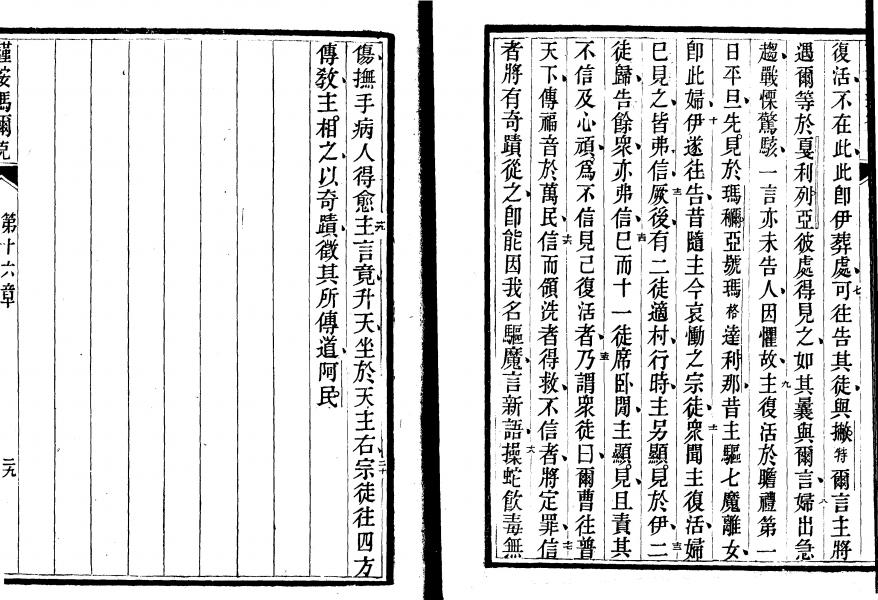 復活不在此此卽伊葬處七可往告其徒與撇特爾言主將
遇爾等於戛利列亞彼處得見之如其曩與爾言八婦出急
趨戰慄驚駭一言亦未告人因懼故九主復活於瞻禮第一
日平旦先見於瑪穪亞號瑪格達利那昔主驅七魔離女
卽此婦十伊遂往告昔隨主今哀慟之宗徒十一衆聞主復活婦
已見之皆弗信十二厥後有二徒適村行時主另顯見於伊十三二
徒歸告餘衆亦弗信十四已而十一徒席卧閒主顯見且責其
不信及心頑爲不信見己復活者十五乃謂衆徒曰爾曹往普
天下傳福音於萬民十六信而領洗者得救不信者將定罪十七信
者將有奇蹟從之卽能因我名驅魔言新語十八操蛇飮毒無
傷撫手病人得愈十九主言竟升天坐於天主右二十宗徒往四方
傳敎主相之以奇蹟徵其所傳道阿民
謹按瑪爾克
第十六章
二九